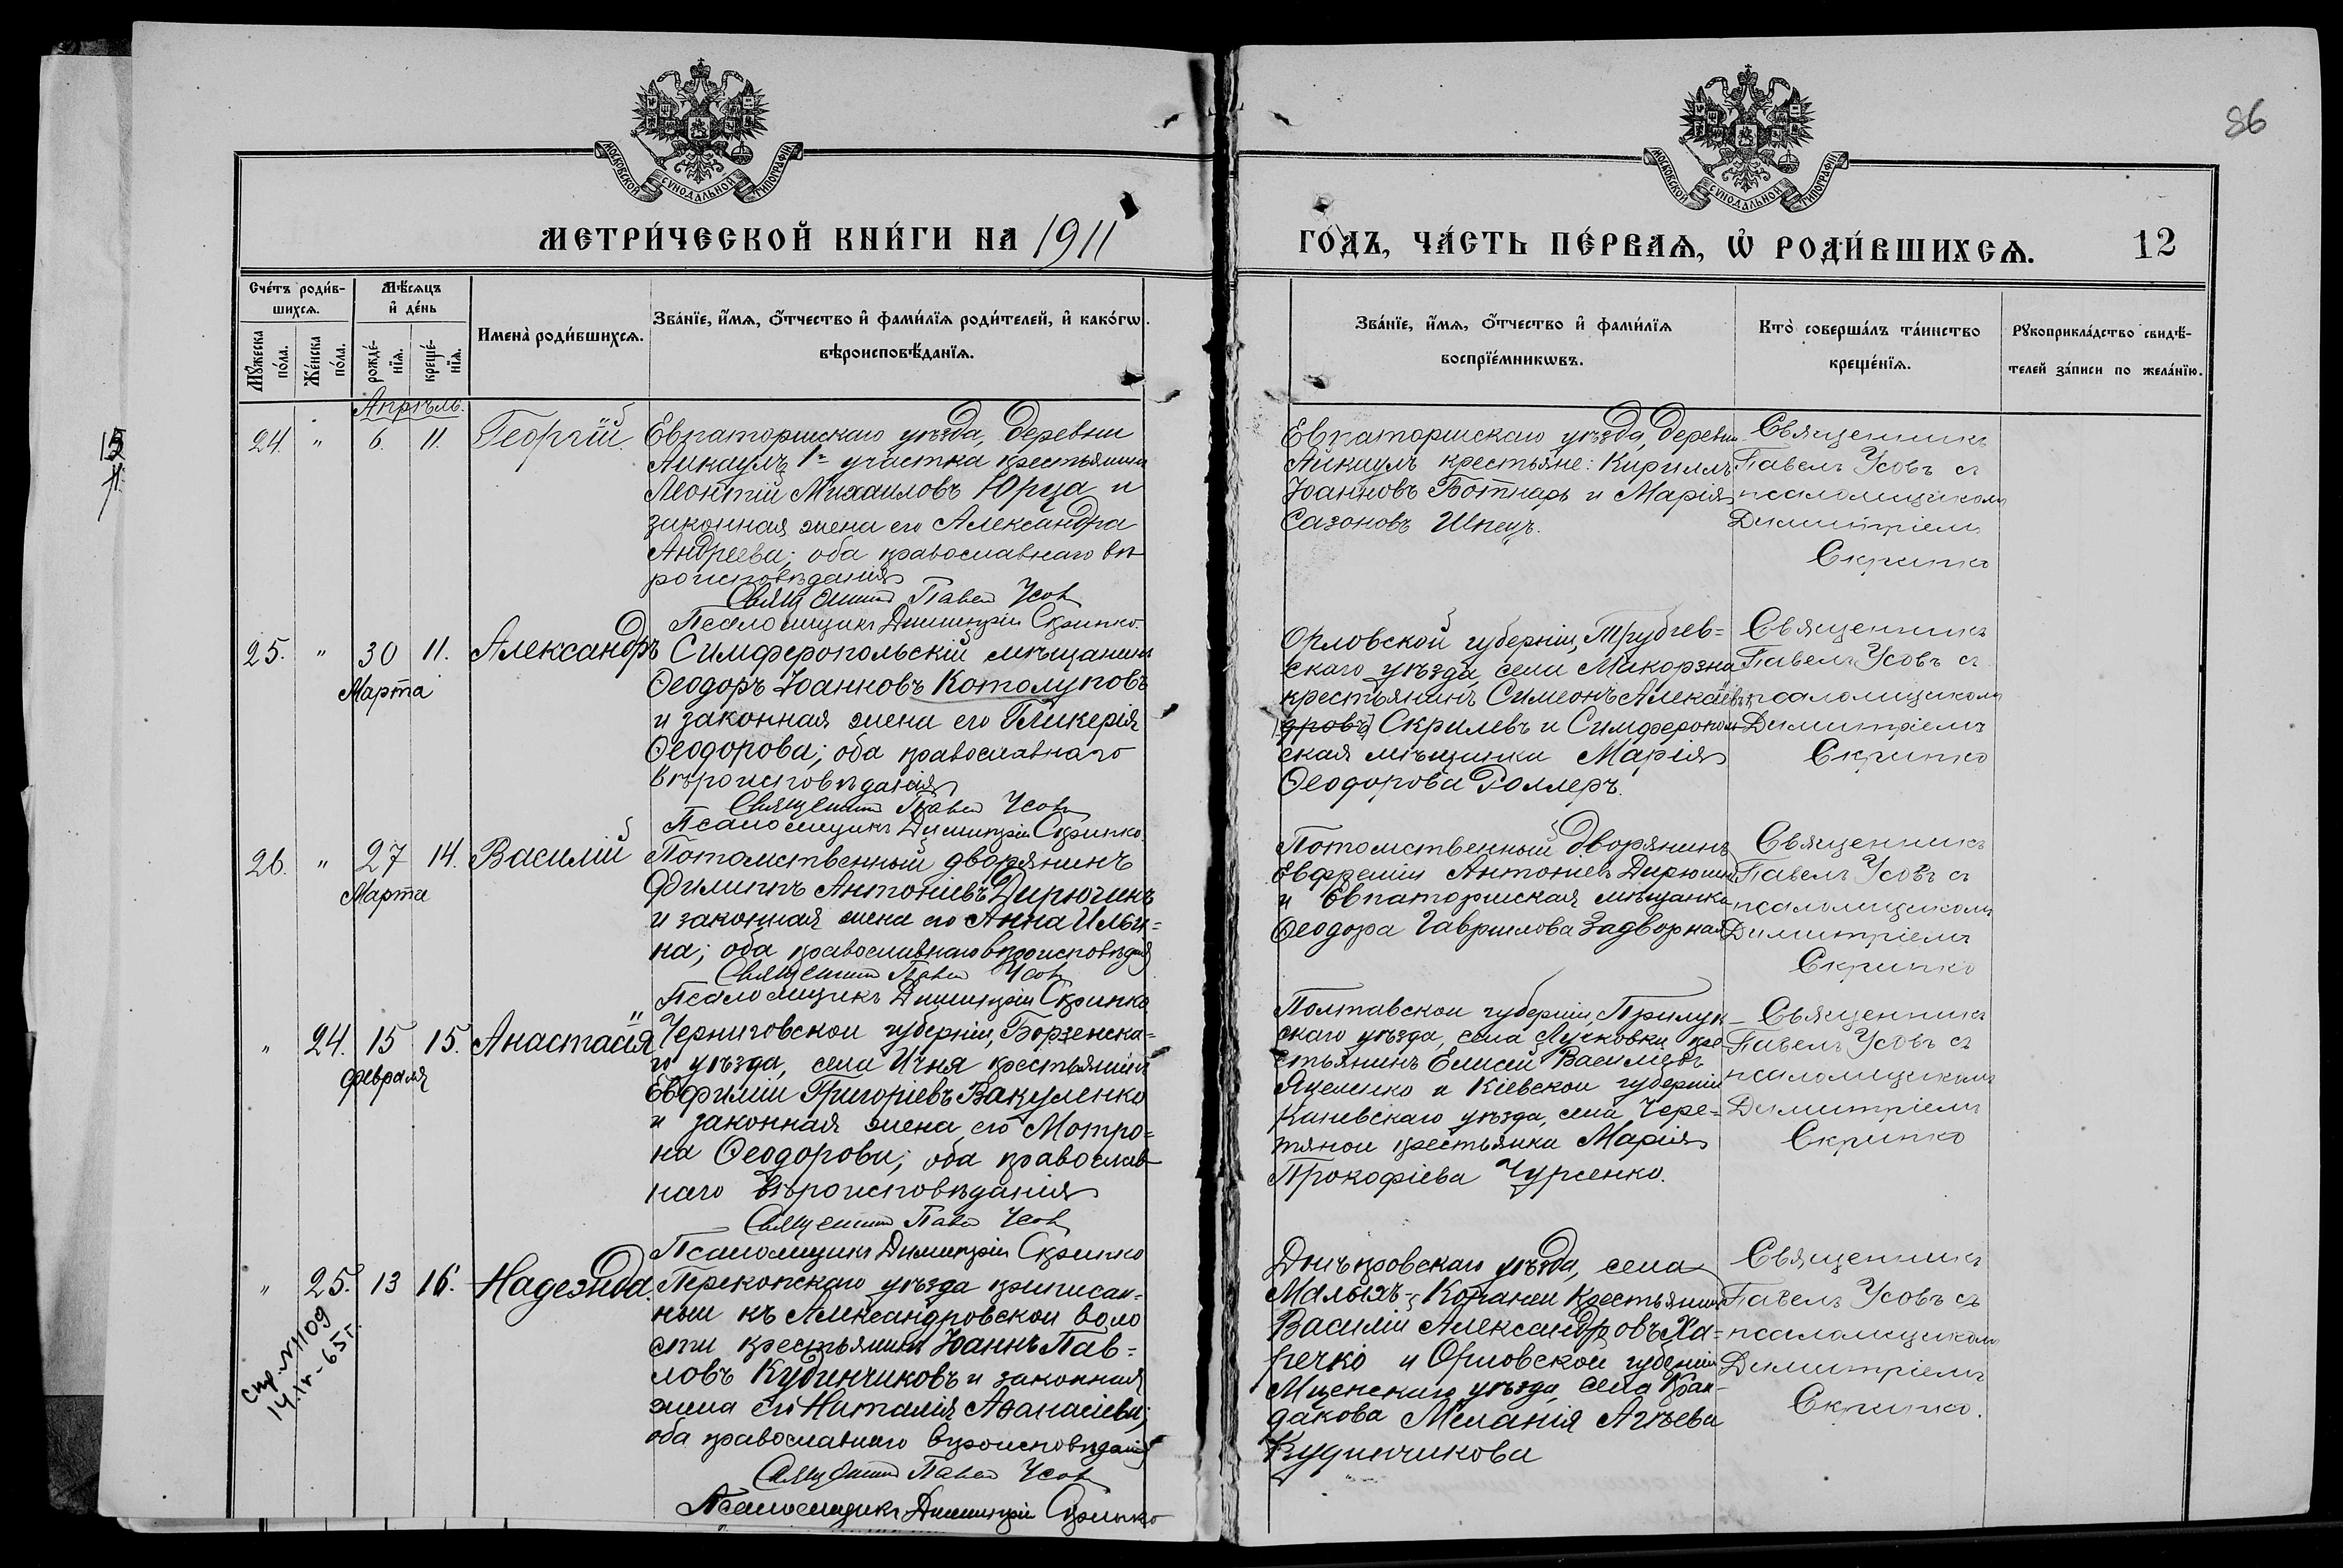 86
МОСКОВСКОЙ СѴНОДАЛЬНОЙ ТИПОГРАФІИ
МОСКОВСКОЙ СѴНОДАЛЬНОЙ ТИПОГРАФІИ
МЕТРИ́ЧЕСКОЙ КНИ́ГИ НА 1911
ГО́ДЪ, ЧА́СТЬ ПЕ́РВАѦ, Ѡ҆ РОДИ́ВШИХСѦ.
12
Сче́тъ роди́в-
шихсѧ.
Мꙋ́жеска
по́ла.
Же́нска
по́ла.
Мѣ́сѧцъ
и҆ де́нь
рожде́-
нїѧ.
креще́-
нїѧ.
Имена̀ роди́вшихсѧ.
Зва́нїе, и҆́мѧ, ѻ҆́тчество и҆ фами́лїѧ роди́телей, и҆ како́гѡ
вѣроисповѣ́данїѧ.
Зва́нїе, и҆́мѧ, ѻ҆́тчество и҆ фами́лїѧ
воспрїе́мникѡвъ.
Кто̀ соверша́лъ та́инство
креще́нїѧ.
Рꙋкоприкла́дство свидѣ́-
телей за́писи по жела́нїю.
Апрѣль.
24. " 6. 11. Георгій.
Евпаторійскаго уѣзда, деревни
Айкаулъ 1го участка крестьянинъ
Леонтій Михаиловъ Юрца и
законная жена его Александра
Андреева; оба православнаго вѣ-
роисповѣданія
Священникъ Павелъ Усовъ
Псаломщикъ Димитрій Скрипко.
Евпаторійскаго уѣзда, деревни
Айкаулъ крестьяне: Кириллъ
Іоанновъ Ботнарь и Марія
Сазоновъ Шпецъ.
Священникъ
Павелъ Усовъ съ
псаломщикомъ
Димитріемъ
Скрипко
25. " 30 11. Александръ
Марта
Симферопольскій мѣщанинъ
Ѳеодоръ Іоанновъ Котолуповъ
и законная жена его Гликерія
Ѳеодорова; оба православнаго
вѣроисповѣданія
Священникъ Павелъ Усовъ
Псаломщикъ Димитрій Скрипко
Орловской губерніи, Трубчев=
скаго уѣзда, села Макорзна
крестьянинъ Симеонъ
дровъ Скрилевъ и Симферополь-
ская мѣщанка Марія
Ѳеодорова Роллеръ.
Священникъ
Павелъ Усовъ съ
псаломщикомъ
Димитріемъ
Скрипко
26. " 27 14. Василій
Марта
Потомственный дворянинъ
Филиппъ Антоніевъ Дирючинъ
и законная жена его Анна Ильи=
на; оба православнаго вѣроисповѣданія
Священникъ Павелъ Усовъ
Псаломщикъ Димитрій Скрипко
Потомственный дворянинъ
Евфремій Антоніевъ
и Евпаторійская мѣщанка
Ѳеодора Гаврилова Задворная
Священникъ
Павелъ Усовъ съ
псаломщикомъ
Димитріемъ
Скрипко
" 24. 15 15. Анастасія
февраля
Черниговской губерніи, Борзенска-
го уѣзда, села Ичня крестьянинъ
Евфимій Григоріевъ Вакуленко
и законная жена его Мотро=
на Ѳеодорова; оба православ-
наго вѣроисповѣданія
Священникъ Павелъ Усовъ
Псаломщикъ Димитрій Скрипко
Полтавской губерніи, Прилук-
скаго уѣзда, села Лучковки кре-
стьянинъ Елисей Васильевъ
Яценко и Кіевской губерніи
Каневскаго уѣзда, села Чере=
тяной крестьянка Марія
Прокофіева Чурсенко.
Священникъ
Павелъ Усовъ съ
псаломщикомъ
Димитріемъ
Скрипко
" 25. 13 16. Надежда.
спр. №1109
14.IV-65 г.
Перекопскаго уѣзда приписан-
ный къ Александровской воло
сти крестьянинъ Іоаннъ Пав=
ловъ Кудинчиковъ и законная
жена его Наталія Аѳанасіева;
оба православнаго вѣроисповѣданія
Священникъ Павелъ Усовъ
Псаломщикъ Димитрій Скрипко
Днѣпровскаго уѣзда, села
Малыхъ-Копаней крестьянинъ
Василій Александровъ Ха=
речко и Орловской губерніи
Мценскаго уѣзда, села
Меланія Агѣева
Кудинчикова
Священникъ
Павелъ Усовъ съ
псаломщикомъ
Димитріемъ
Скрипко.